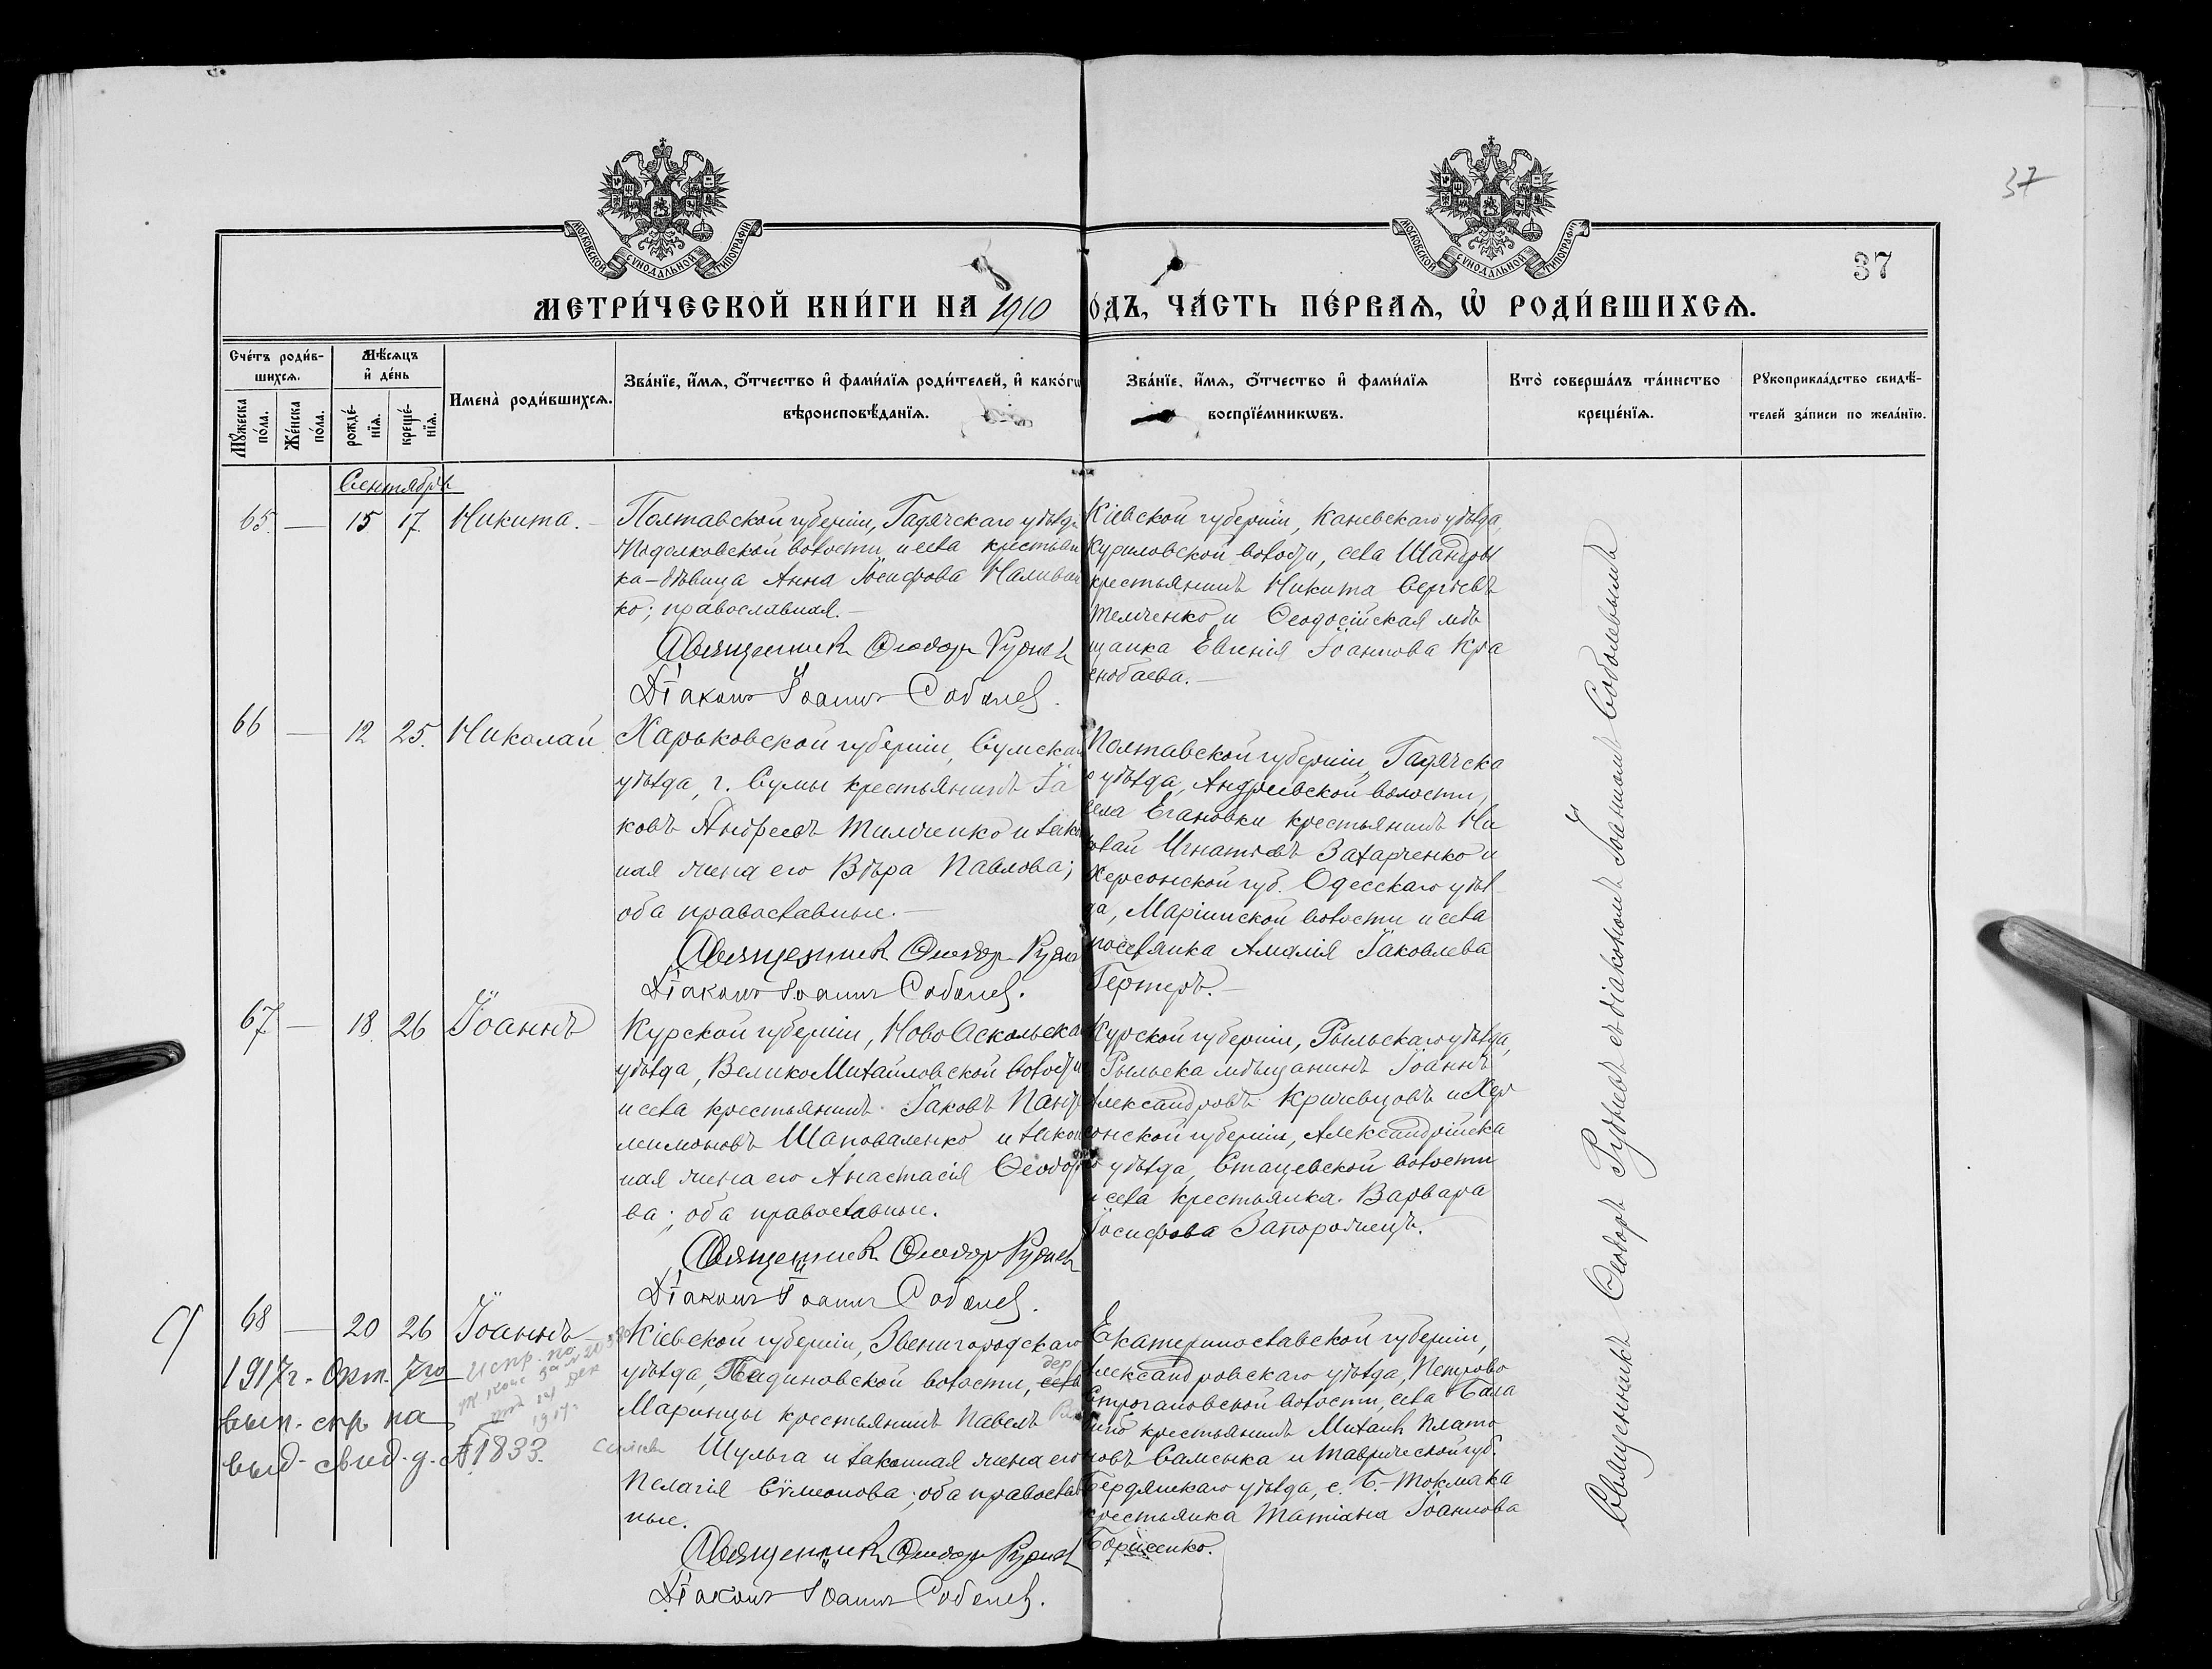 37
37
МОСКОВСКОЙ СѴНОДАЛЬНОЙ ТИПОГРАФІИ
МОСКОВСКОЙ СѴНОДАЛЬНОЙ ТИПОГРАФІИ
МЕТРИ́ЧЕСКОЙ КНИ́ГИ НА 1910
ОДЪ, ЧА́СТЬ ПЕ́РВАЯ, Ѡ РОДИ́ВШИХСЯ.
Сче́тъ роди́в-
шихся.
Мѣ́сяцъ
и де́нь
Мꙋ́жеска
по́ла.
Же́нска
по́ла.
рожде́-
нїя.
креще́-
нїя.
Имена̀ роди́вшихся.
Зва́нїе, и́мя, о́тчество и фами́лїя роди́телей, и како́гѡ
вѣроисповѣ́данїя.
Зва́нїе, и́мя, о́тчество и фами́лїя
воспрїе́мникѡвъ.
Кто̀ соверша́лъ та́инство
креще́нїя.
Рꙋкоприкла́дство свидѣ́-
телей за́писи по жела́нїю.
Сентябрь
65. — 15 17. Никита. —
Полтавской губерніи, Гадячскаго уѣзда
волости и села крестьян
ка-дѣвица Анна Іосифова Наливай
ко; православная. —
Священникъ Ѳеодоръ Рудневъ
Діаконъ Іоаннъ Соболевъ.
Кіевской губерніи, Каневскаго уѣзда,
Куриловской волости, села Шандры
крестьянинъ Никита Сергіевъ
Темченко и Ѳеодосійская мѣ
щанка Евгенія Іоаннова Кра
снобаева. —
66 — 12 25. Николай
Харьковской губерніи, Сумскаго
уѣзда, г. Сумы крестьянинъ Іа
ковъ Андреевъ Тимченко и закон
ная жена его Вѣра Павлова;
оба православные. —
Священникъ Ѳеодоръ Рудневъ
Діаконъ Іоаннъ Соболевъ.
Полтавской губерніи, Гадячска
го уѣзда, Андреевской волости,
села Егановки крестьянинъ Ни
колай Игнатіевъ Захарченко и
Херсонской губ. Одесскаго уѣз
да, Маріинской волости и села
поселянка Амалія Іаковлева
Гертеръ. —
67 — 18. 26 Іоаннъ
Курской губерніи, НовоОскольска
уѣзда, ВеликоМихайловской волости
и села крестьянинъ Іаковъ Пант
леимоновъ Шаповаленко и закон
ная жена его Анастасія Ѳеодоро
ва; оба православные.
Священникъ Ѳеодоръ Рудневъ
Діаконъ Іоаннъ Соболевъ.
Курской губерніи, Рыльскаго уѣзда,
Рыльска мѣщанинъ Іоаннъ
Александровъ Кричевцовъ и Хер
сонской губерніи, Александрійска
го уѣзда, Стацевской волости
и села крестьянка Варвара
Іосифова Запорожецъ.
68 — 20 26 Іоаннъ
1917г. Окт. 7го
вып. спр на
выд. свид. д. №1833.
Испр. по
1917г.
Кіевской губерніи, Звенигородскаго
уѣзда, волости, села дер
Маринцы крестьянинъ Павелъ
Шульга и законная жена его
Пелагія Сѵмеонова; оба православ
ные.
Священникъ Ѳеодоръ Рудневъ
Діаконъ Іоаннъ Соболевъ.
Екатеринославской губерніи,
Александровскаго уѣзда, Петрово
волости, села Бала
бино крестьянинъ Михаилъ Плато
новъ Самсыка и Таврической губ.
Бердянскаго уѣзда, с. Б.-Токмака
крестьянка Татіана Іоаннова
Борисенко.
Священникъ Ѳеодоръ Рудневъ съ діакономъ Іоанномъ Соболевымъ